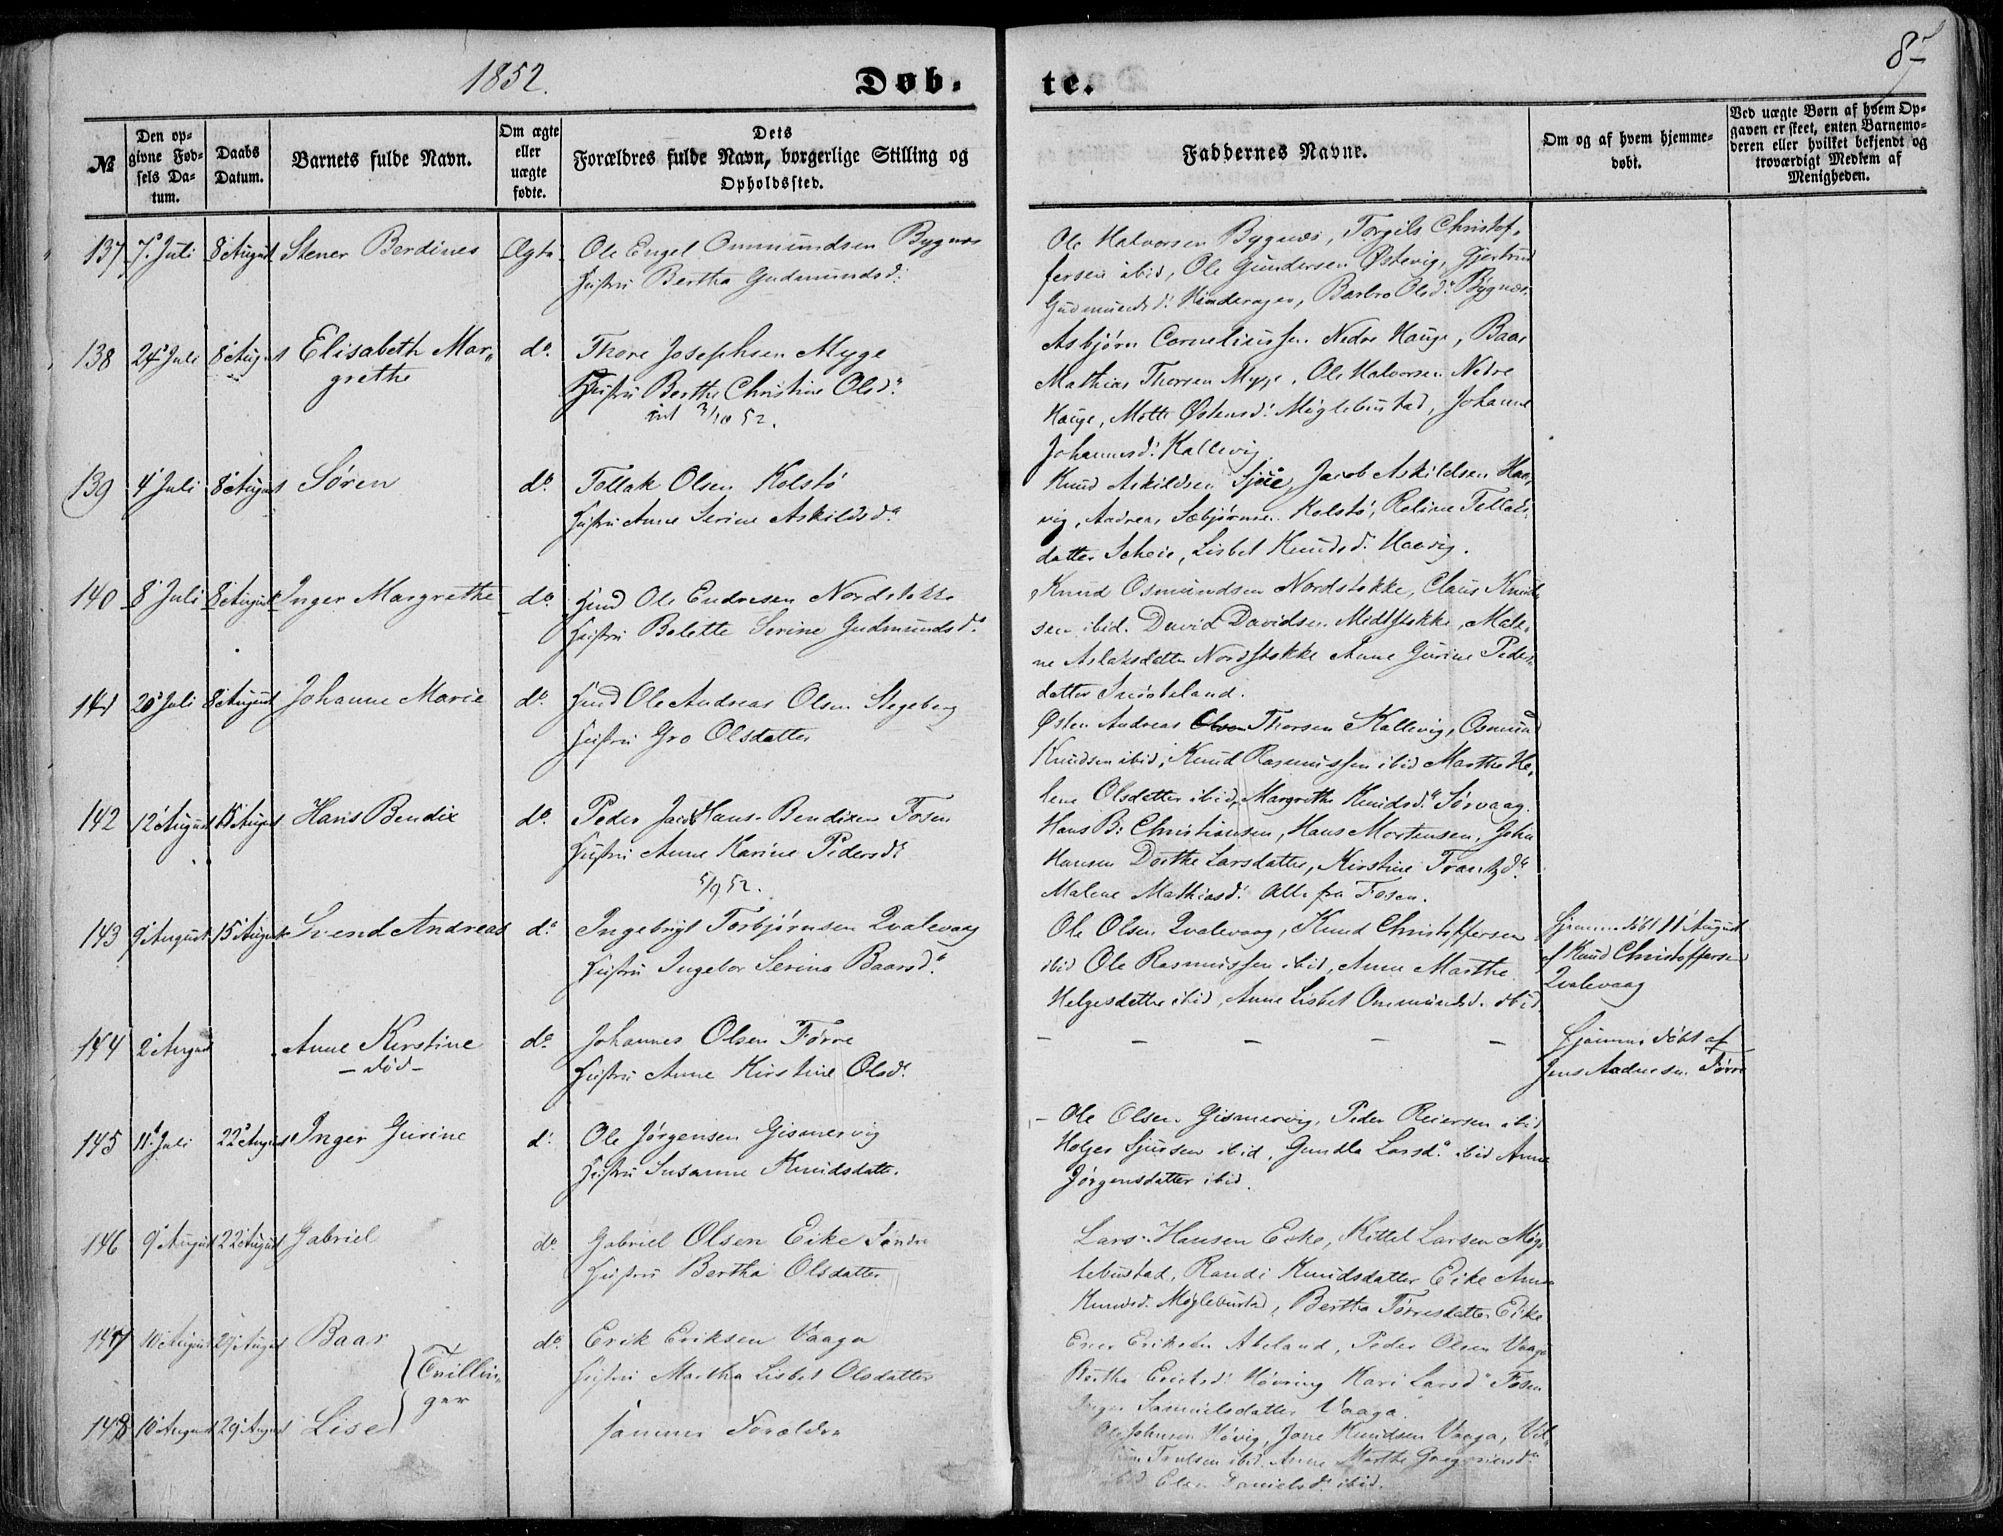 1852.
Døb-
te.
85
№
Den op-
givne Fød-
sels Da-
tum.
Daabs
Datum.
Barnets fulde Navn.
Om ægte
eller
uægte
fødte.
Dets
Forældres fulde Navn, borgerlige Stilling og
Opholdssted.
Faddernes Navne.
Om og af hvem hjemme-
døbt.
Ved uægte Børn af hvem Op-
gaven er skeet, enten Barnemo-
deren eller hvilket bekjendt og
troværdigt Medlem af
Menigheden.
137 7 Juli 8 August Stener Berdines Ægte
Ole Engel Ommundsen Bygnes
Hustru Bertha Gudmundsd.
Ole Halvorsen Bygnes, Torgils Christof-
fersen ibid, Ole Gundersen Østevig, Gjertrud
Gudmundsd. Hinderager, Barbro Olsd. Bygnes
138 24 Juli 8 August Elisabeth Mar-
grethe
do. Thore Josephsen Myge
Hustru Berthe Christine Olsd.
int 3/10 52.
Asbjørn Corneliussen Nedre Hauge, Baar
Mathias Thorsen Myge, Ole Halvorsen Nedre
Hauge, Mette Østensd. Møglebustad, Johanne
Johannesd. Kallevig
139 4 Juli 8 August Søren
do. Tollak Olsen Kolstø
Hustru Anne Serine Askildsd.
Knud Askildsen, Jacob Askildsen Haa-
vig, Andreas Sæbjørnsen Kolstø, Reline Tollaks-
datter Scheie, Lisbet Knudsd. Haavig.
140 8 Juli 8 August Inger Margrethe
do. Hmd Ole Endresen Nordstokke
Hustru Bolette Serine Gudmundsd.
Knud Osmundsen Nordstokke, Claus Knud-
sen ibid. David Davidsen Midtstokke, Male-
ne Aslaksdatter Nordstokke Anne Gurine Peders-
datter Snørteland.
141 20 Juli 8 August Johanne Marie
do. Hmd Ole Andreas Olsen Stegeberg
Hustru Gro Olsdatter
Østen Andreas Olsen Thorsen Kallevig, Osmund
Knudsen ibid, Knud Rasmussen ibid Marthe He-
lene Olsdatter ibid, Margrethe Knudsd. Sørvaag.
142 12 August 15 August Hans Bendix
do. Peder Jacob Hans Bendixen Fosen
Hustru Anne Karine Pedersd.
5/9 52.
Hans B. Christiansen, Hans Mortensen, John
Hansen Dorthe Larsdatter, Kirstine Frantzd.
Malene Mathiasd. Alle fra Fosen.
143 9 August 15 August Svend Andreas
do. Ingebrigt Torbjørnsen Qvalevaag
Hustru Ingebor Serina Baarsd.
Ole Olsen Qvalevaag, Knud Christoffersen
ibid Ole Rasmussen ibid, Anne Marthe
Helgesdatter ibid, Anne Lisbet Ommundsd. ibid.
Hjemmedøbt 11 August
af Knud Christoffersen
Qvalevaag
144 2 August Anne Kirstine
- død -
do. Johannes Olsen Førre
Hustru Anne Kirstine Olsd.
- - - - -
Hjemmedøbt af
Jens Andresen Førre
145 11 Juli 22 August Inger Gurine
do. Ole Jørgensen Gismervig
Hustru Susanne Knudsdatter
- Ole Olsen Gismervig, Peder Reiersen ibid
Holger Sjursen ibid, Gundla Larsd. ibid Anne
Jørgensdatter ibid.
146 9 August 22 August Gabriel
do. Gabriel Olsen Eike Søndre
Hustru Bertha Olsdatter
Lars Hansen Eike, Kittel Larsen Møg-
lebustad, Randi Knudsdatter Eike Anne
Knudsd. Møglebustad, Bertha Tørresdatter Eike
147 10 August 29 August Baar
do. Erik Eriksen Vaaga
Hustru Martha Lisbet Olsdatter
Tvillin-
ger
Eriksen Abeland, Peder Olsen Vaage
Bertha Ericksd. Høvring Kari Larsd. Fosen
Inger Samuelsdatter Vaaga.
148 10 August 29 August Lise
samme Forældre
Ole Johnsen Høvig, Jone Knudsen Vaaga, Vil-
Truelsen ibid. Anne Marthe Gregoriusd.
ibid Elen Danielsd. ibid.